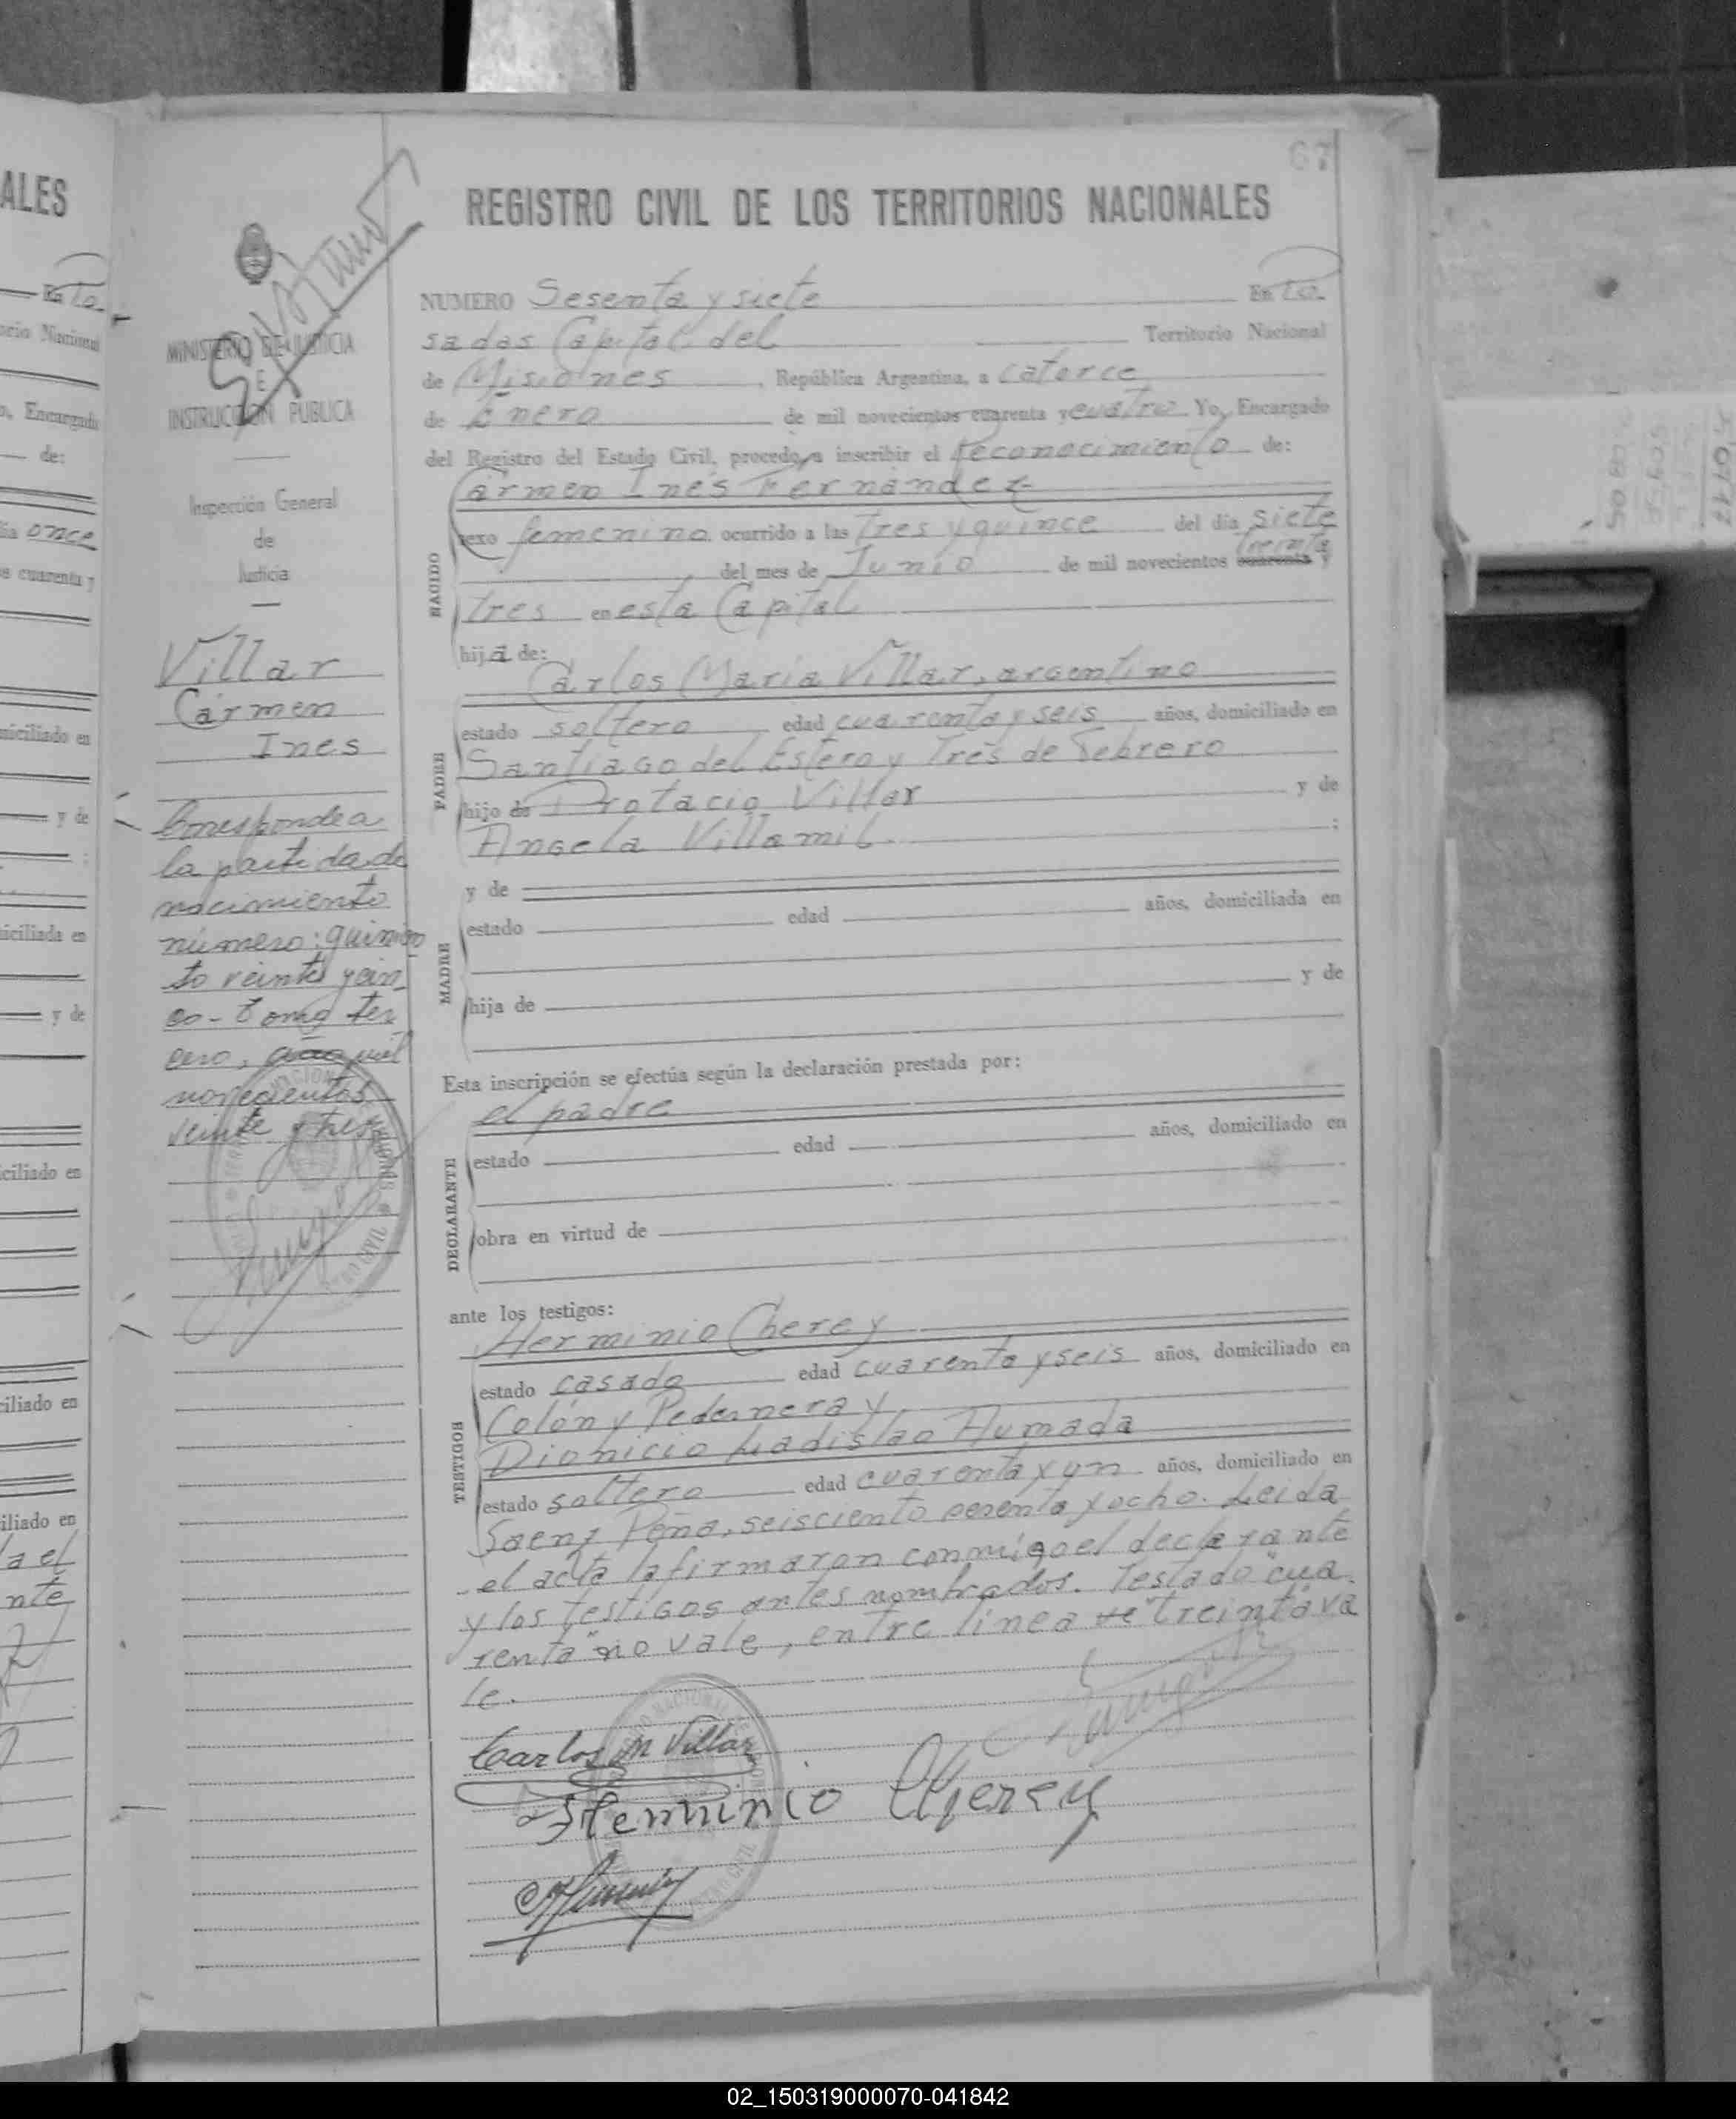 67
REGISTRO CIVIL DE LOS TERRITORIOS NACIONALES
NUMERO Sesenta y siete En Po-
sadas Capital del Territorio Nacional
de Misiones, República Argentina, a catorce
de Enero de mil novecientos cuarenta y cuatro Yo, Encargado
del Registro del Estado Civil, procedo a inscribir el Reconocimiento de:
Carmen Inés Fernandez
NACIDO
sexo femenino ocurrido a las tres y quince del día siete
treinta
del mes de Junio de mil novecientos cuarenta y
tres en esta Capital
hija de:
Carlos Maria Villar, argentino
PADRE
estado soltero edad cuarenta y seis años, domiciliado en
Santiago del Estero y Tres de Febrero
hijo de Protacio Villar y de
Angela Villamil ;
y de
MADRE
estado edad años, domiciliada en
hija de y de
Esta inscripción se efectúa según la declaración prestada por:
el padre
DECLARANTE
estado edad años, domiciliado en
obra en virtud de
ante los testigos:
Herminio Cherey
TESTIGOS
estado casado edad cuarenta y seis años, domiciliado en
Colón y Pedernera y
Dionicio Ladislao Aumada
estado soltero edad cuarenta y un años, domiciliado en
Saenz Peña, seisciento y ocho. Leida
el acta la firmaron conmigo el declarante
y los testigos antes nombrados. Testado "cua
renta" no vale, entre linea "treinta" va
le.
Carlos M Villar
Herminio Cherey
MINISTERIO DE JUSTICIA
E
INSTRUCCION PUBLICA
Inspección General
de
Justicia
Villar
Carmen
Ines
Corresponde a
la partida de
nacimiento
número: quinien
to veinte y cin
co - tomo ter
cero, año mil
novecientos
veinte y tres
ALES
ocio Nacional
o, Encargado
de:
ía once
s cuarenta y
niciliado en
y de
niciliada en
y de
ciliado en
ciliado en
iliado en
la el
nte
02_150319000070-041842